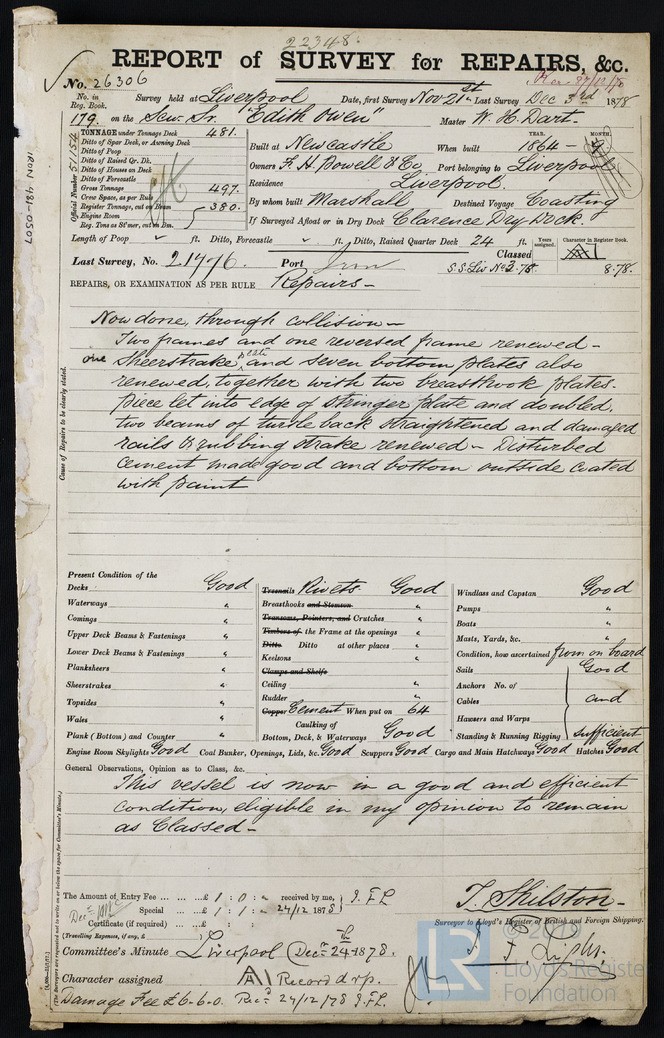 22348.
REPORT of SURVEY for REPAIRS, &c.
No. 26306
No. in Reg. Book. Survey held at Liverpool Date, first Survey Nov 21st Last Survey Dec 3rd 1878
179. on the Scw. Sr. "Edith Owen" Master W. H. Dart.
TONNAGE under Tonnage Deck 481.
Ditto of Spar Deck, or Awning Deck
Ditto of Poop
Ditto of Raised Qr. Dk.
Ditto of Houses on Deck
Ditto of Forecastle
Gross Tonnage 497.
Crew Space, as per Rule
Register Tonnage, cut on Beam 380.
Engine Room
Reg. Tons as St'mer, cut on Bm.
Official Number 51154
IRON 481-0507
YEAR. MONTH.
Built at Newcastle When built 1864 - 9
Owners F. H. Powell & Co Port belonging to Liverpool
Residence Liverpool
By whom built Marshall Destined Voyage Coasting
If Surveyed Afloat or in Dry Dock Clarence Dry Dock.
Length of Poop ft. Ditto, Forecastle ft. Ditto, Raised Quarter Deck 24 ft. Years assigned. Character in Register Book.
Classed A1
Last Survey, No. 21776 Port Iron S.S. Liv No 3.78 8.78.
REPAIRS, OR EXAMINATION AS PER RULE Repairs -
Cause of Repairs to be clearly stated.
Now done, through collision -
Two frames and one reversed frame renewed -
one Sheerstrake plate and seven bottom plates also
renewed, together with two breasthook plates.
piece let into edge of stringer plate and doubled,
two beams of turtle back straightened and damaged
rails & rubbing strake renewed - Disturbed
cement made good and bottom outside coated
with paint
Present Condition of the
Decks Good
Waterways "
Comings "
Upper Deck Beams & Fastenings "
Lower Deck Beams & Fastenings "
Planksheers "
Sheerstrakes "
Topsides "
Wales "
Plank (Bottom) and Counter "
Treenails Rivets Good
Breasthooks and Stemson "
Transoms, Pointers, and Crutches "
Timbers of the Frame at the openings "
Ditto Ditto at other places "
Keelsons "
Clamps and Shelfs
Ceiling "
Rudder "
Copper Cement When put on 64
Caulking of
Bottom, Deck, & Waterways Good
Windlass and Capstan Good
Pumps "
Boats "
Masts, Yards, &c. "
Condition, how ascertained from on board
Sails Good
Anchors No. of
Cables and
Hawsers and Warps
Standing & Running Rigging sufficient
Engine Room Skylights Good Coal Bunker, Openings, Lids, &c. Good Scuppers Good Cargo and Main Hatchways Good Hatches Good
General Observations, Opinion as to Class, &c.
This vessel is now in a good and efficient
condition, eligible in my opinion to remain
as Classed -
The Amount of Entry Fee ... ... £ 1 : 0 : " received by me, J. F. L
Special ... ... £ 1 : 1 : " 24/12 1878
Certificate (if required) ... £ : :
(Travelling Expenses, if any, £
T. Shilston -
Surveyor to Lloyd's Register of British and Foreign Shipping.
Committee's Minute Liverpool Dec 24th 1878.
Character assigned A1 Record drp.
Damage Fee £6-6-0. Recd 24/12/78 J.F.L.
LR
Lloyd's Register
Foundation